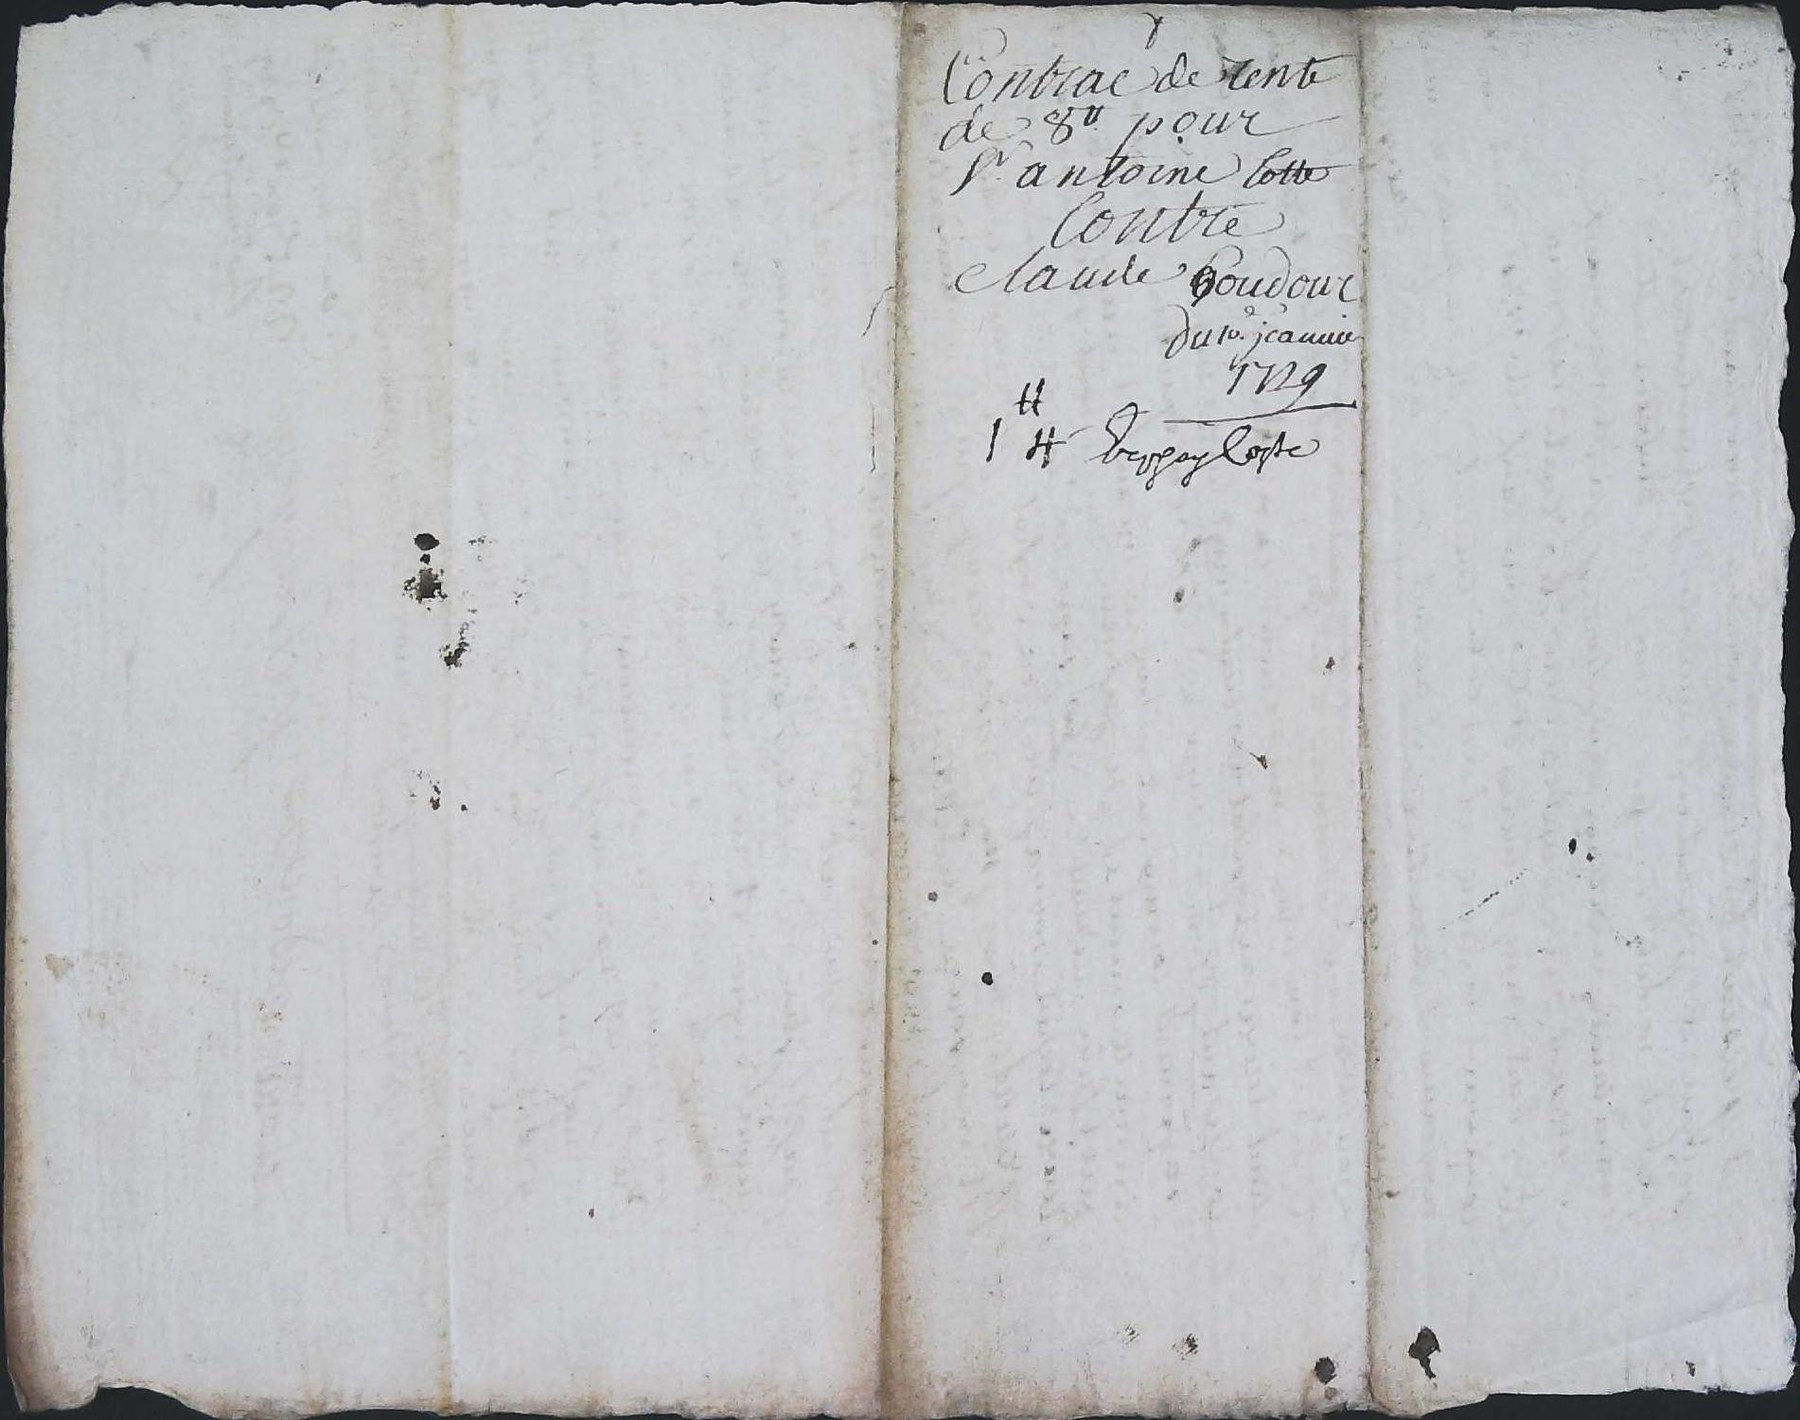 Contrac de rente
de 8ᵗᵗ pour
Sʳ antoine Cotte
Contre
claude Coudour
du 10ᵉ jeanuie
1729
H
1 H Coste